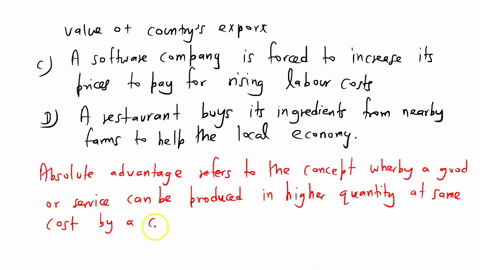 value of country's export
C) A software company is forced to increase its
prices to pay for rising labour costs
D) A restaurant buys its ingredients from nearby
farms to help the local economy.
Absolute advantage refers to the concept wherby a good
or service can be produced in higher quantity at same
cost by a c.